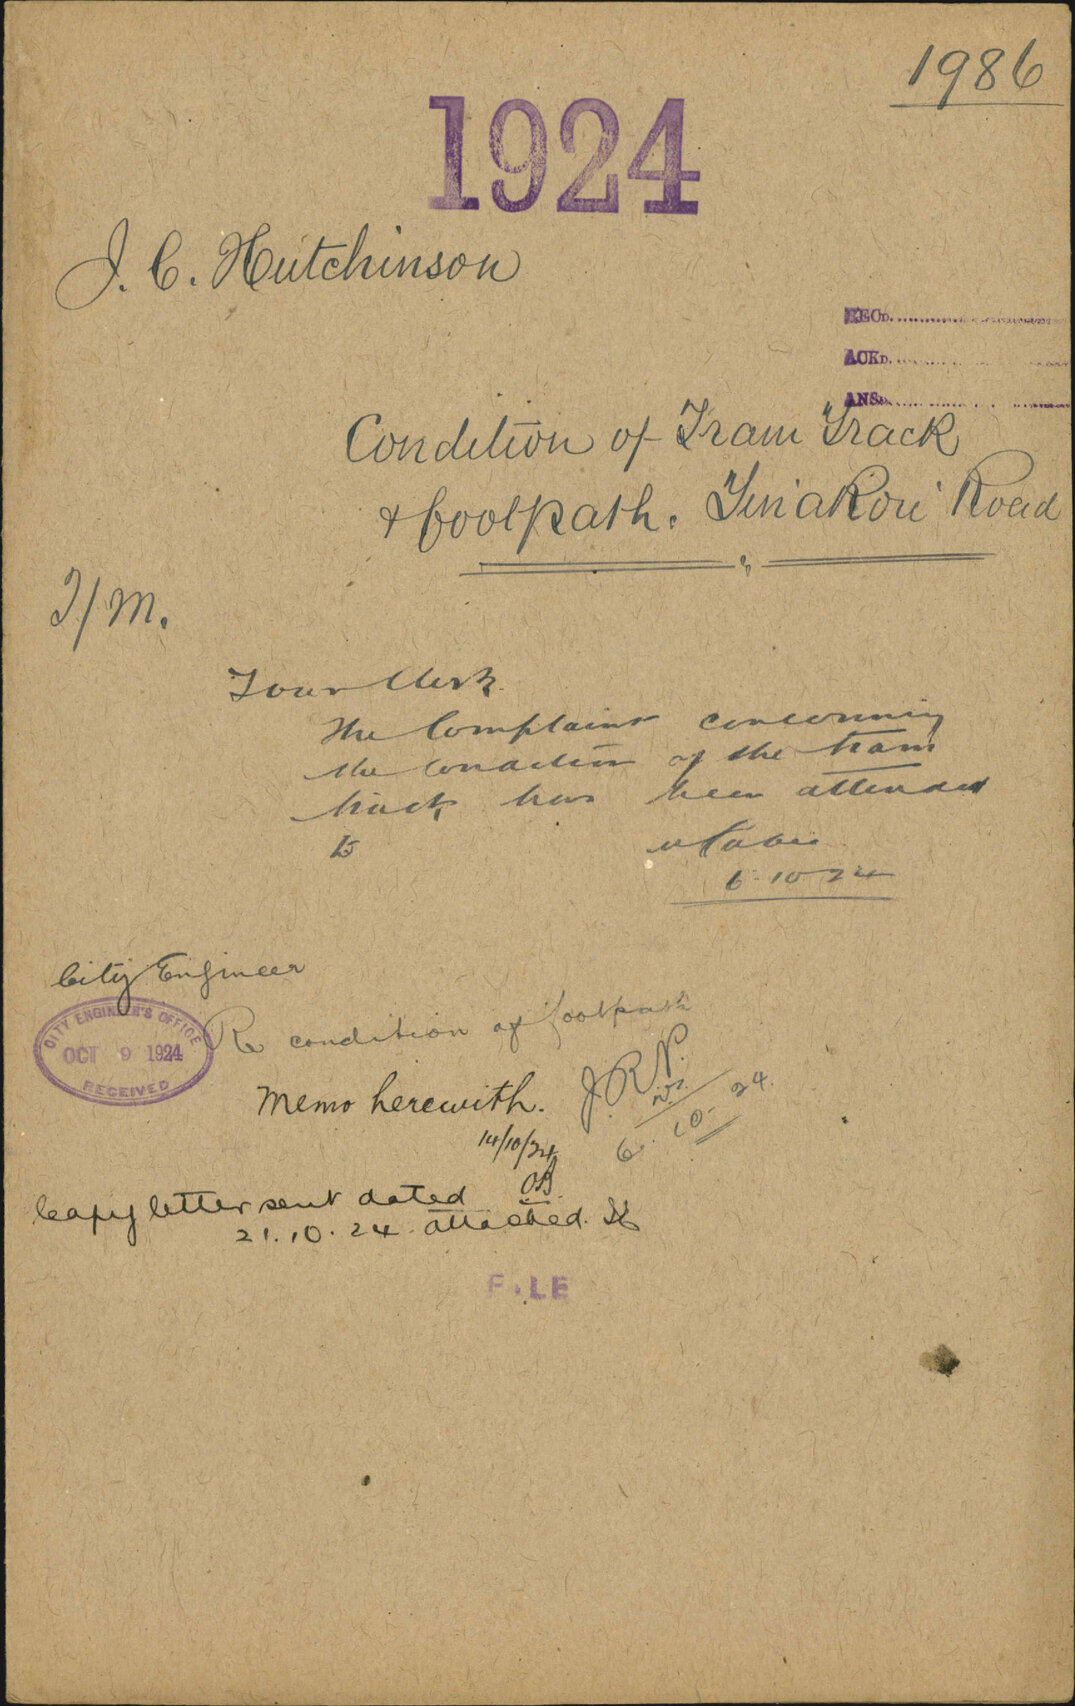 1986
1924
J. C. Hutchinson
RECD.
ACKD.
ANSD.
Condition of Tram Track
& footpath. Tinakori Road
T/M.
Town Clerk.
The Complaint concerning
the condition of the tram
track has been attended
to
6-10-24
City Engineer
CITY ENGINEER'S OFFICE
OCT 9 1924
RECEIVED
Re condition of footpath
J.R.N.
6.10.24.
Memo herewith.
14/10/24
Copy letter sent dated
21.10.24 attached.
FILE